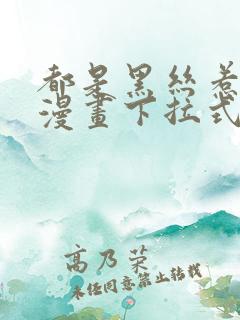 都是黑絲惹
漫畫下拉式
高乃榮
未经同意禁止转载